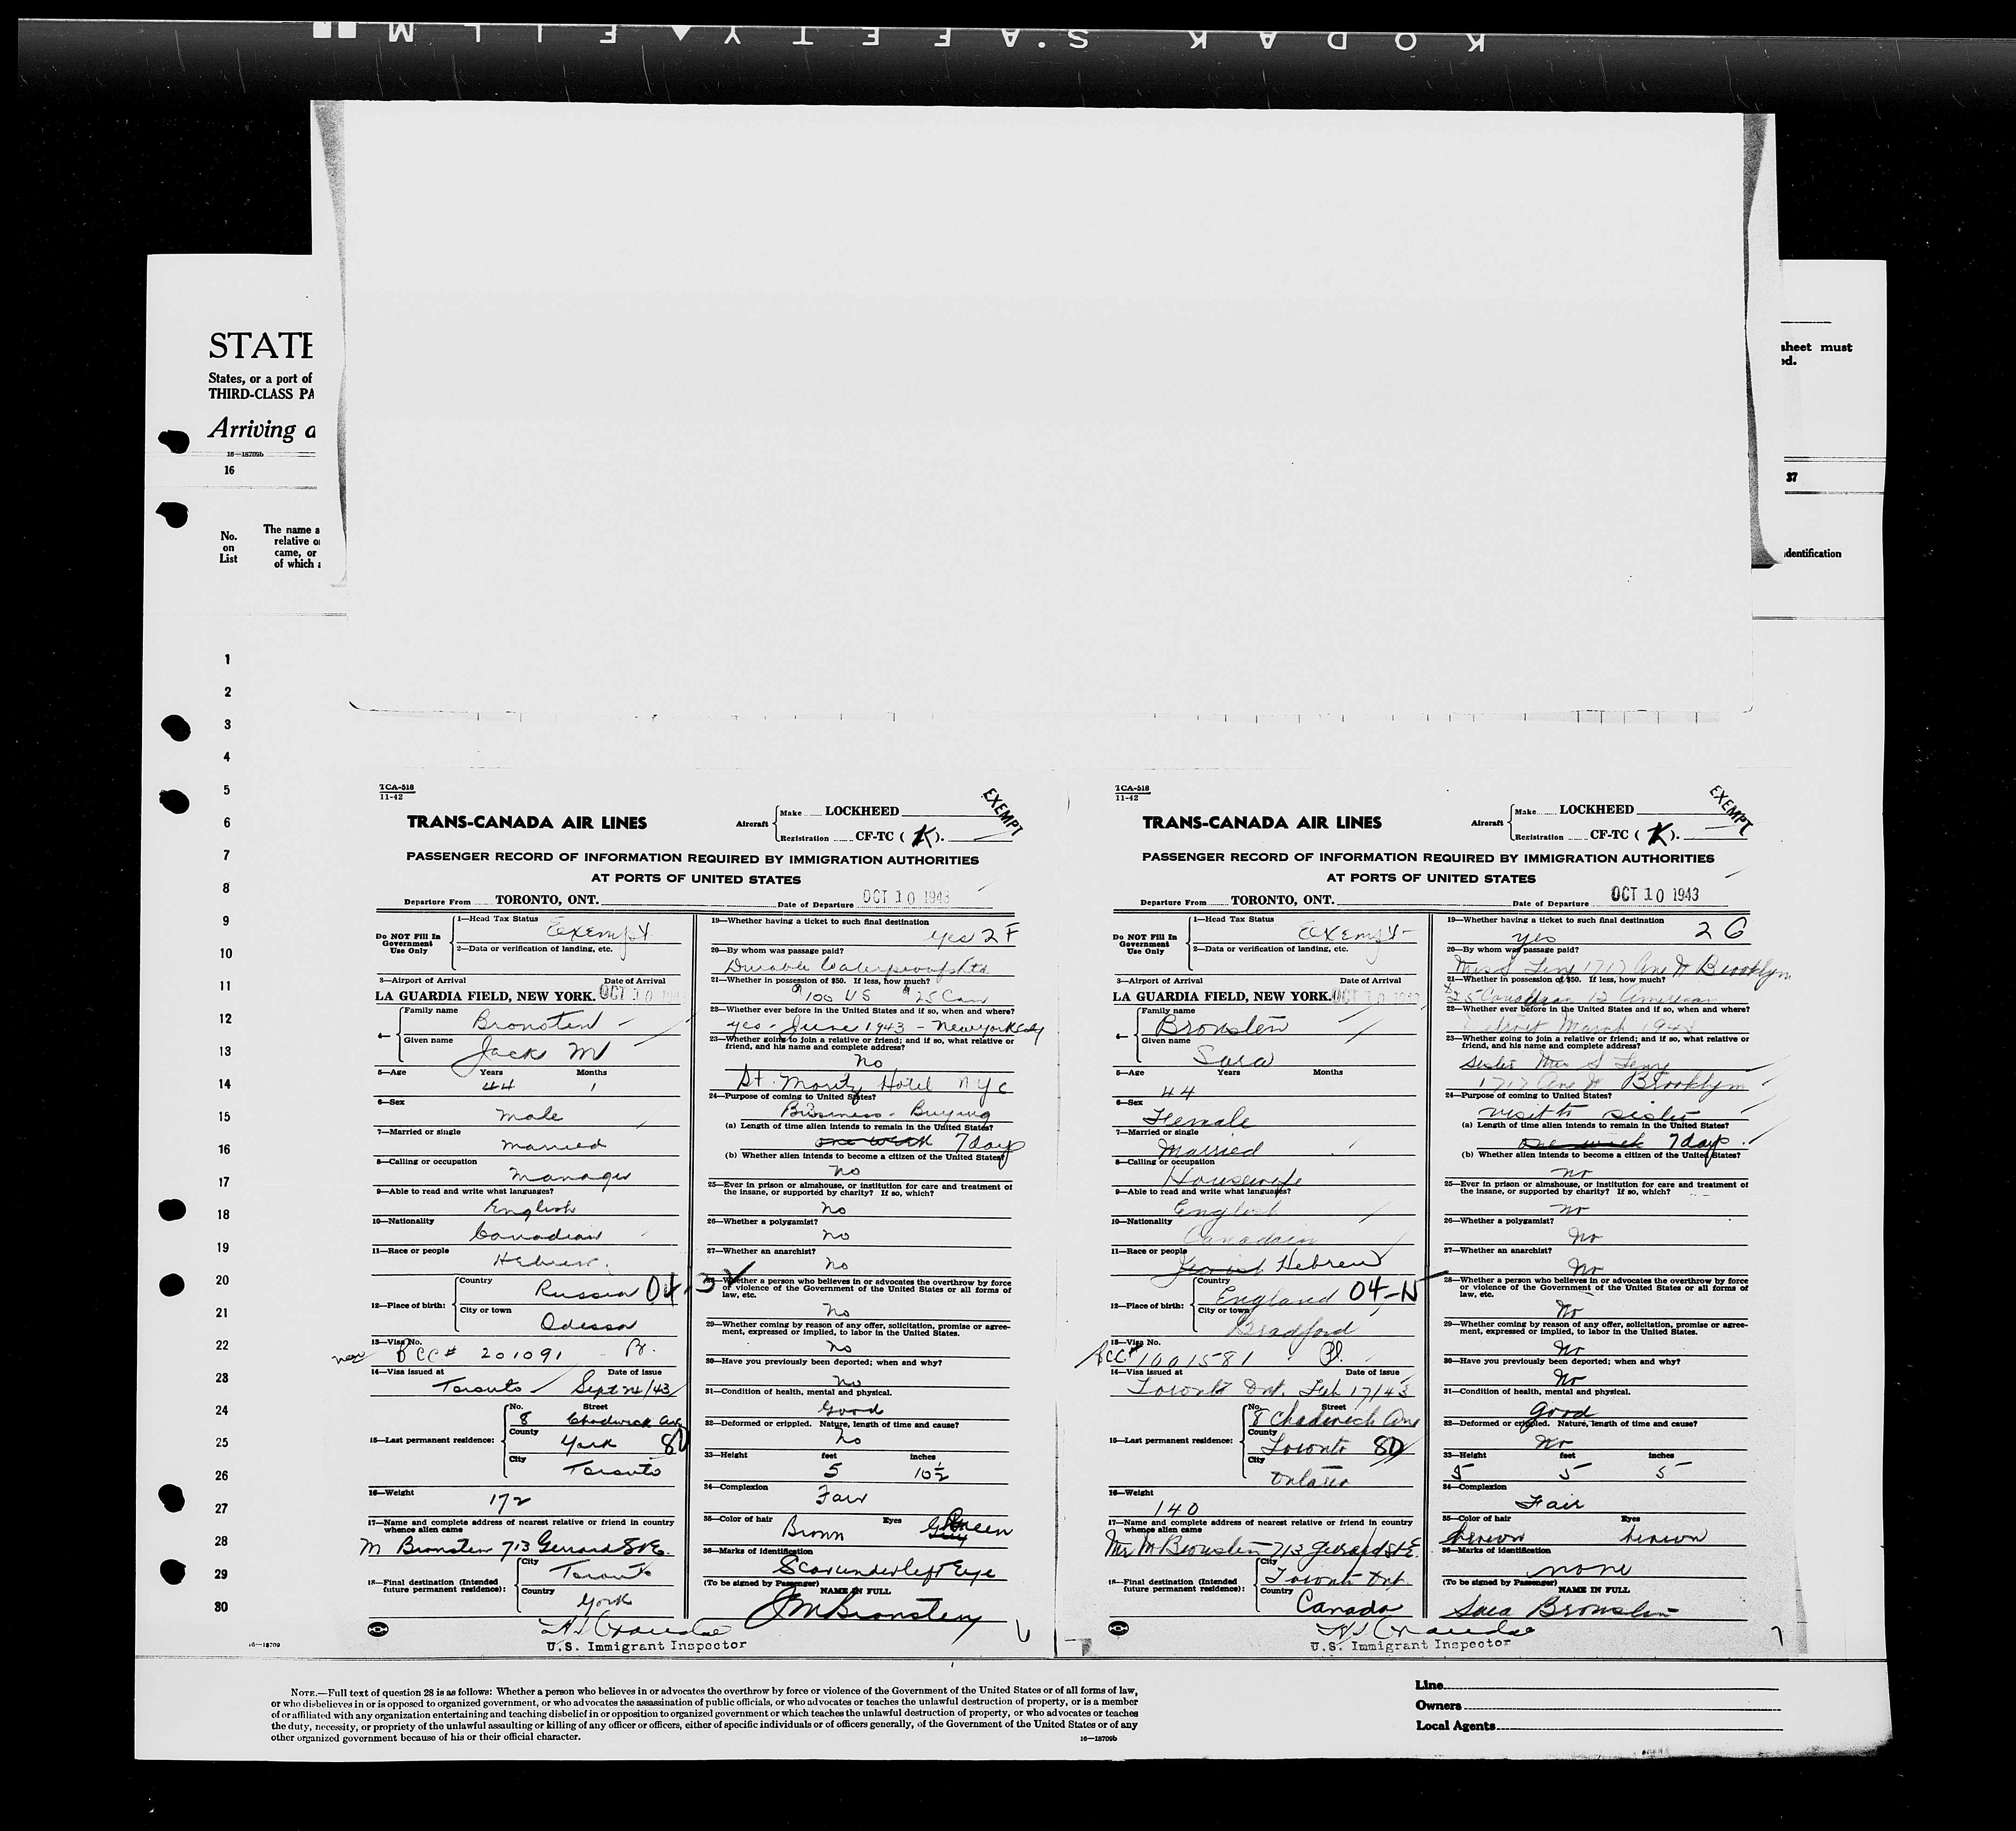 KODAK S'AFETY FILM
STATE
States, or a port of
THIRD-CLASS PA
Arriving a
16—18709b
16
No.
on
List
The name a
relative o
came, or
of which a
sheet must
ed.
37
identification
1
2
3
4
5
6
7
8
9
10
11
12
13
14
15
16
17
18
19
20
21
22
23
24
25
26
27
28
29
30
16—18709
TCA-518
11-42
TRANS-CANADA AIR LINES
Aircraft
Make LOCKHEED
Registration CF-TC ( K ).
EXEMPT
PASSENGER RECORD OF INFORMATION REQUIRED BY IMMIGRATION AUTHORITIES
AT PORTS OF UNITED STATES
Departure From TORONTO, ONT. Date of Departure OCT 10 1943
Do NOT Fill In
Government
Use Only
1—Head Tax Status
Exempt
2—Data or verification of landing, etc.
3—Airport of Arrival Date of Arrival
LA GUARDIA FIELD, NEW YORK. OCT 10 194
4—
Family name
Bronsten
Given name
Jack M
5—Age Years Months
44 1
6—Sex
Male
7—Married or single
Married
8—Calling or occupation
Manager
9—Able to read and write what languages?
English
10—Nationality
Canadian
11—Race or people
Hebrew
12—Place of birth:
Country
Russia 04-3
City or town
Odessa
13—Visa No.
BCC# 201091
14—Visa issued at Date of issue
Toronto Sept 24/43
15—Last permanent residence:
No. Street
8 Chadwick Ave
County
York 8D
City
Toronto
16—Weight
172
17—Name and complete address of nearest relative or friend in country
whence alien came
M Bronsten 713 Gerrard St E.
18—Final destination (Intended
future permanent residence):
City
Toronto
Country
York
U.S. Immigrant Inspector
19—Whether having a ticket to such final destination
yes 2F
20—By whom was passage paid?
Durable Waterproof Ltd
21—Whether in possession of $50. If less, how much?
$100 US $25 Can
22—Whether ever before in the United States and if so, when and where?
yes - June 1943 - New York City
23—Whether going to join a relative or friend; and if so, what relative or
friend, and his name and complete address?
No
St. Moritz Hotel NYC
24—Purpose of coming to United States?
Business - Buying
(a) Length of time alien intends to remain in the United States?
one week 7 days
(b) Whether alien intends to become a citizen of the United States?
No
25—Ever in prison or almshouse, or institution for care and treatment of
the insane, or supported by charity? If so, which?
No
26—Whether a polygamist?
No
27—Whether an anarchist?
No
28—Whether a person who believes in or advocates the overthrow by force
or violence of the Government of the United States or all forms of
law, etc.
No
29—Whether coming by reason of any offer, solicitation, promise or agree-
ment, expressed or implied, to labor in the United States.
No
30—Have you previously been deported; when and why?
No
31—Condition of health, mental and physical.
Good
32—Deformed or crippled. Nature, length of time and cause?
No
33—Height feet inches
5 10½
34—Complexion
Fair
35—Color of hair Eyes
Brown Green
36—Marks of identification
Scar under left Eye
(To be signed by Passenger) NAME IN FULL
JM Bronsten
TCA-518
11-42
TRANS-CANADA AIR LINES
Aircraft
Make LOCKHEED
Registration CF-TC ( K ).
EXEMPT
PASSENGER RECORD OF INFORMATION REQUIRED BY IMMIGRATION AUTHORITIES
AT PORTS OF UNITED STATES
Departure From TORONTO, ONT. Date of Departure OCT 10 1943
Do NOT Fill In
Government
Use Only
1—Head Tax Status
Exempt
2—Data or verification of landing, etc.
3—Airport of Arrival Date of Arrival
LA GUARDIA FIELD, NEW YORK. OCT 10 194
4—
Family name
Bronsten
Given name
Sara
5—Age Years Months
44
6—Sex
Female
7—Married or single
Married
8—Calling or occupation
Housewife
9—Able to read and write what languages?
English
10—Nationality
Canadain
11—Race or people
Jewish Hebrew
12—Place of birth:
Country
England 04-N
City or town
Bradford
13—Visa No.
BCC# 1001581
14—Visa issued at Date of issue
Toronto Ont. Feb 17/43
15—Last permanent residence:
No. Street
8 Chadwick Ave
County
Toronto 8D
City
Ontario
16—Weight
140
17—Name and complete address of nearest relative or friend in country
whence alien came
Mr M Bronsten 713 Gerrard St E.
18—Final destination (Intended
future permanent residence):
City
Toronto Ont.
Country
Canada
U.S. Immigrant Inspector
19—Whether having a ticket to such final destination
yes 2G
20—By whom was passage paid?
1717 Ave Brooklyn
21—Whether in possession of $50. If less, how much?
$25 Canadian 12 American
22—Whether ever before in the United States and if so, when and where?
Detroit March 1943
23—Whether going to join a relative or friend; and if so, what relative or
friend, and his name and complete address?
Sister Mrs S
1717 Ave Brooklyn
24—Purpose of coming to United States?
visit to sister
(a) Length of time alien intends to remain in the United States?
one week 7 days.
(b) Whether alien intends to become a citizen of the United States?
no
25—Ever in prison or almshouse, or institution for care and treatment of
the insane, or supported by charity? If so, which?
no
26—Whether a polygamist?
No
27—Whether an anarchist?
No
28—Whether a person who believes in or advocates the overthrow by force
or violence of the Government of the United States or all forms of
law, etc.
No
29—Whether coming by reason of any offer, solicitation, promise or agree-
ment, expressed or implied, to labor in the United States.
No
30—Have you previously been deported; when and why?
No
31—Condition of health, mental and physical.
Good
32—Deformed or crippled. Nature, length of time and cause?
No
33—Height feet inches
5 5 5
34—Complexion
Fair
35—Color of hair Eyes
brown brown
36—Marks of identification
none
(To be signed by Passenger) NAME IN FULL
Sara Bronsten
NOTE.—Full text of question 28 is as follows: Whether a person who believes in or advocates the overthrow by force or violence of the Government of the United States or of all forms of law,
or who disbelieves in or is opposed to organized government, or who advocates the assassination of public officials, or who advocates or teaches the unlawful destruction of property, or is a member
of or affiliated with any organization entertaining and teaching disbelief in or opposition to organized government or which teaches the unlawful destruction of property, or who advocates or teaches
the duty, necessity, or propriety of the unlawful assaulting or killing of any officer or officers, either of specific individuals or of officers generally, of the Government of the United States or of any
other organized government because of his or their official character.
16—18709b
Line
Owners
Local Agents